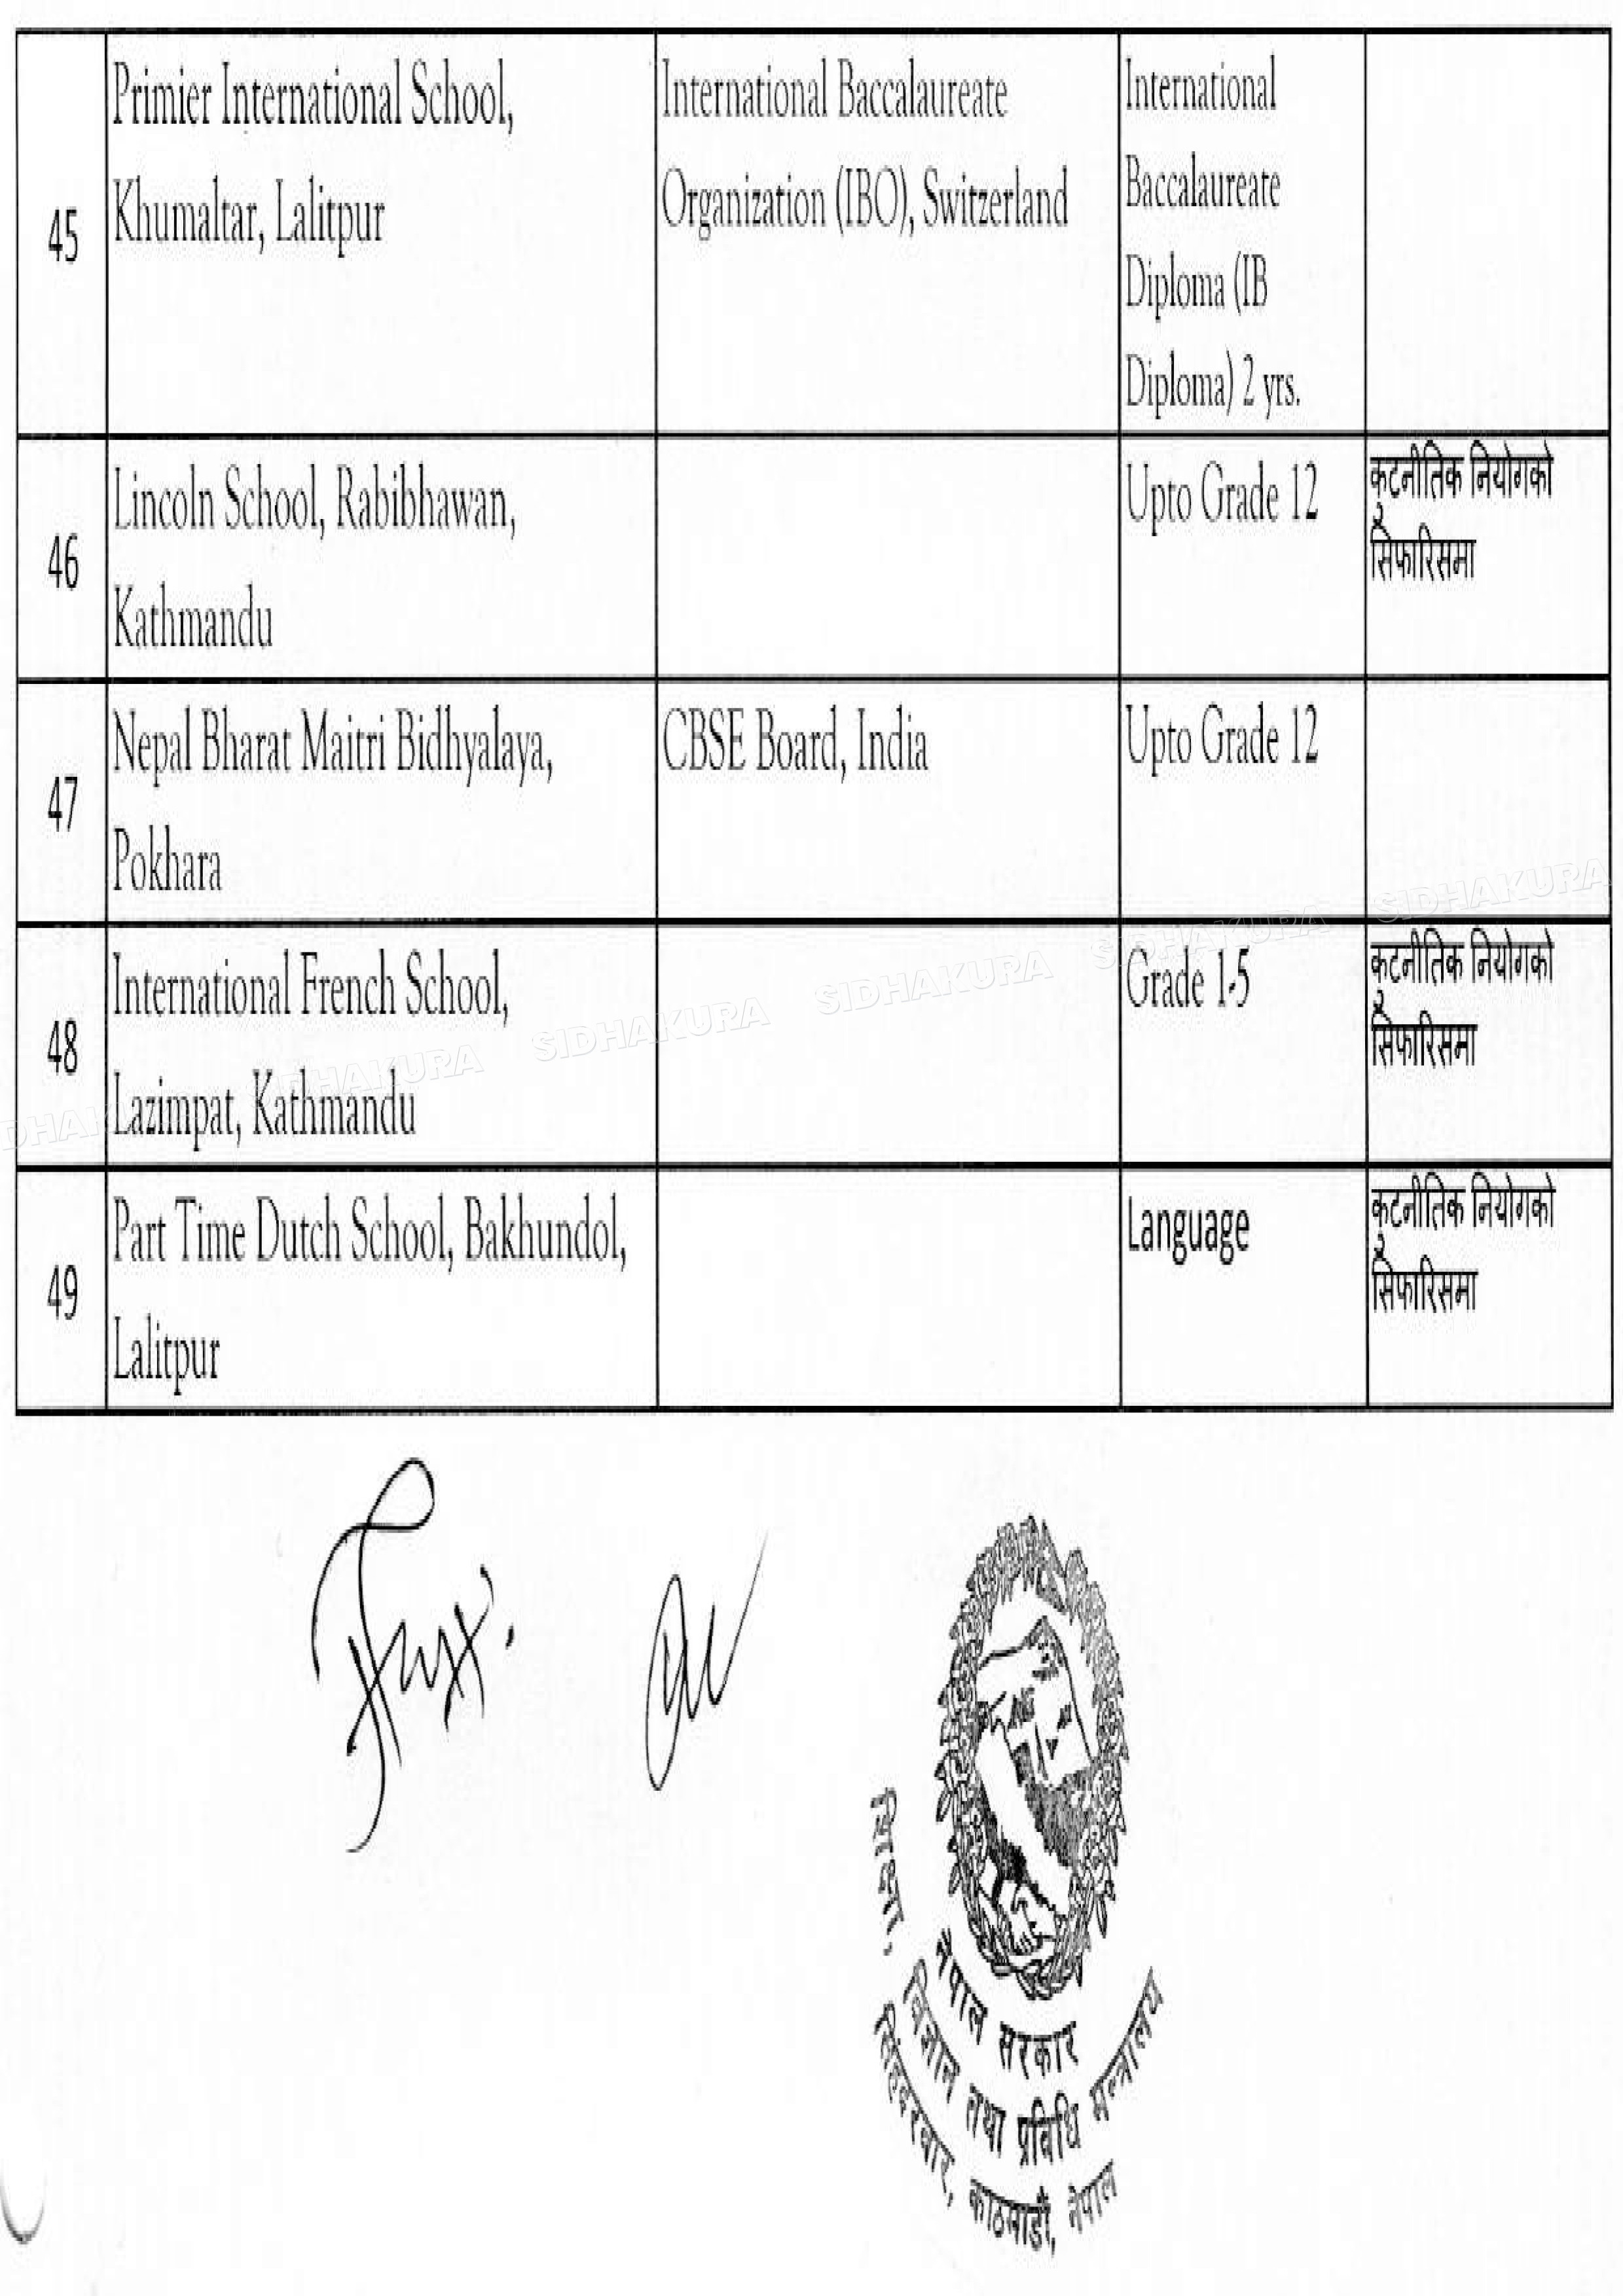 45
Primier International School,
Khumaltar, Lalitpur
International Baccalaureate
Organization (IBO), Switzerland
International
Baccalaureate
Diploma (IB
Diploma) 2 yrs.
46
Lincoln School, Rabibhawan,
Kathmandu
Upto Grade 12
कूटनीतिक नियोगको
सिफारिसमा
47
Nepal Bharat Maitri Bidhyalaya,
Pokhara
CBSE Board, India
Upto Grade 12
48
International French School,
Lazimpat, Kathmandu
Grade 1-5
कूटनीतिक नियोगको
सिफारिसमा
49
Part Time Dutch School, Bakhundol,
Lalitpur
Language
कूटनीतिक नियोगको
सिफारिसमा
SIDHAKURA SIDHAKURA SIDHAKURA SIDHAKURA
नेपाल सरकार
शिक्षा, विज्ञान तथा प्रविधि मन्त्रालय
सिंहदरबार, काठमाडौं, नेपाल